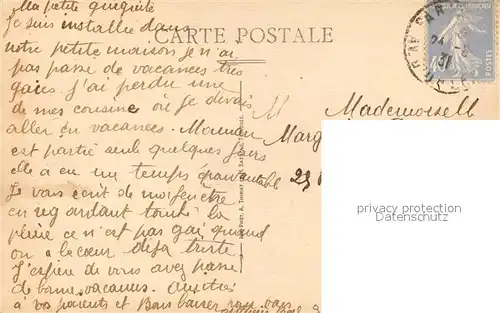 Ma petite
je suis installée dans
CARTE POSTALE
notre petite maison je n'ai
pas passé de vacances très
gaies. j'ai perdu une
de mes cousine où je devais
aller en vacances. Maman
est partie seule quelques jours
elle a eu un temps épouvantable
Je vous écrit de ma fenêtre
en regardant tombé la
pluie ce n'est pas gai quand
on a le cœur déjà triste
J'espère de vous avez passé
de bonne vacances.
à vos parents et Bons baiser
M
Mademoiselle
Marg
23
privacy protection
Datenschutz
POSTES